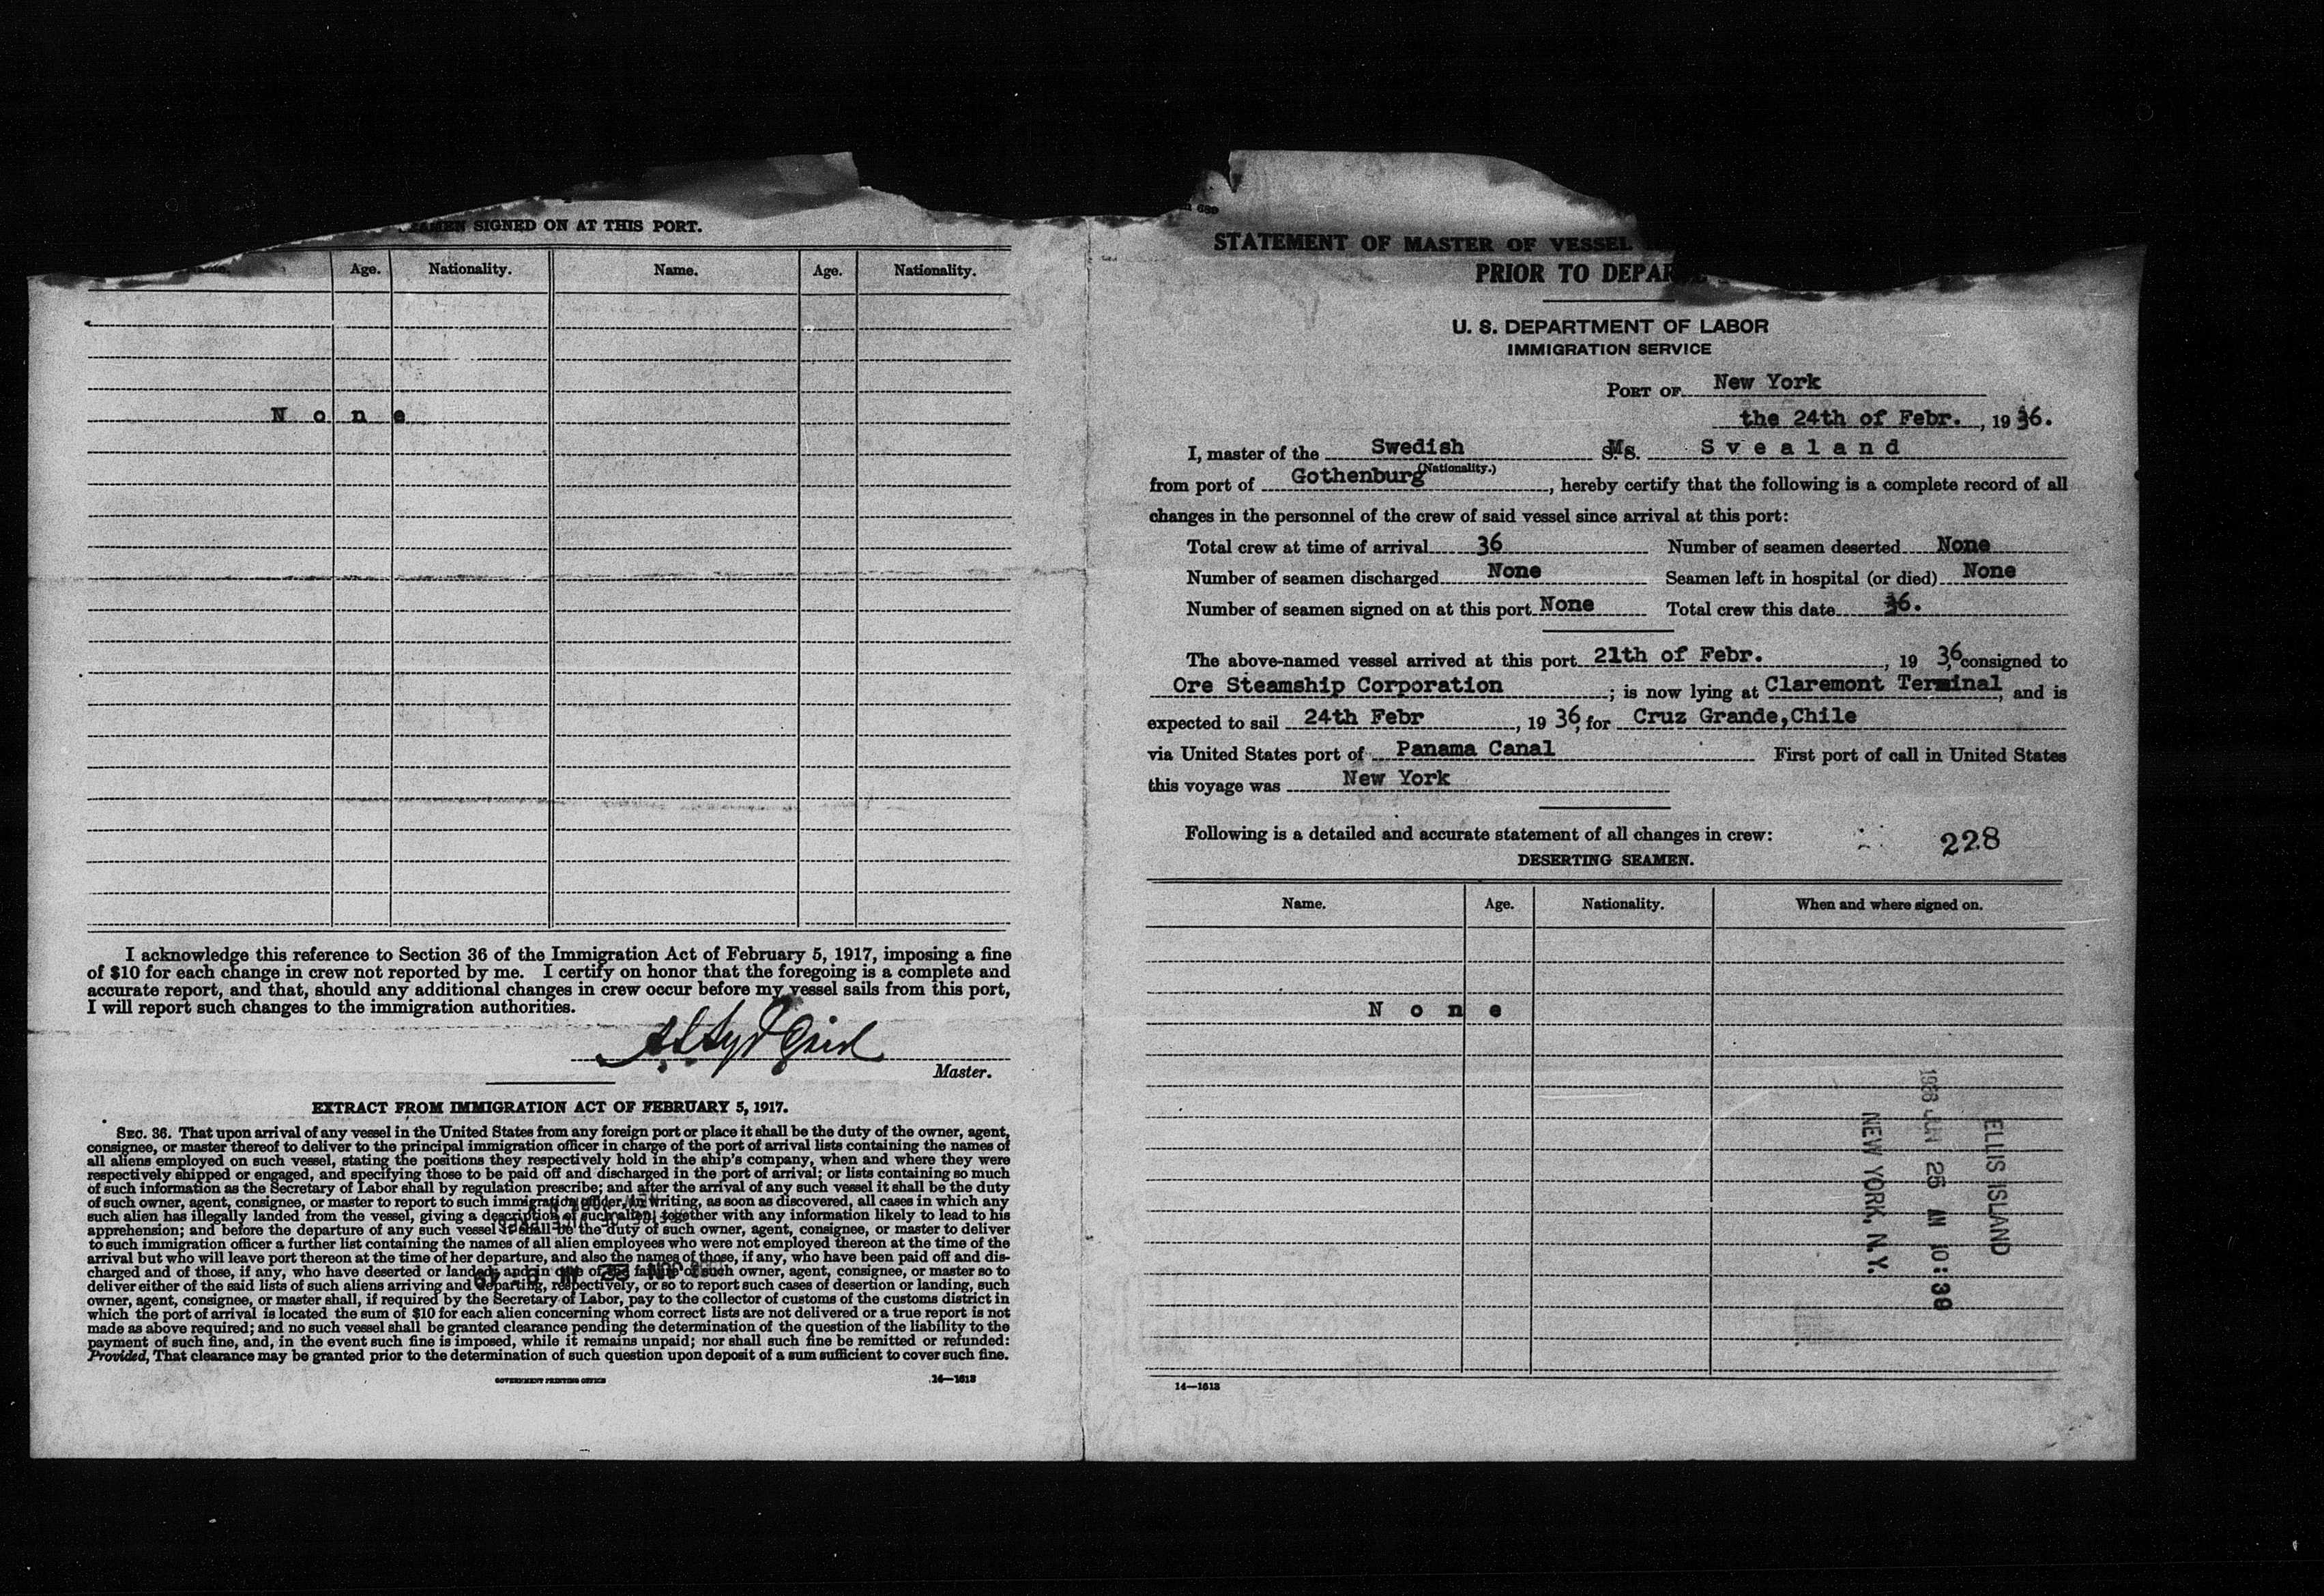 SEAMEN SIGNED ON AT THIS PORT.
Name. Age. Nationality. Name. Age. Nationality.
N o n e
I acknowledge this reference to Section 36 of the Immigration Act of February 5, 1917, imposing a fine
of $10 for each change in crew not reported by me. I certify on honor that the foregoing is a complete and
accurate report, and that, should any additional changes in crew occur before my vessel sails from this port,
I will report such changes to the immigration authorities.
Master.
EXTRACT FROM IMMIGRATION ACT OF FEBRUARY 5, 1917.
SEC. 36. That upon arrival of any vessel in the United States from any foreign port or place it shall be the duty of the owner, agent,
consignee, or master thereof to deliver to the principal immigration officer in charge of the port of arrival lists containing the names of
all aliens employed on such vessel, stating the positions they respectively hold in the ship's company, when and where they were
respectively shipped or engaged, and specifying those to be paid off and discharged in the port of arrival; or lists containing so much
of such information as the Secretary of Labor shall by regulation prescribe; and after the arrival of any such vessel it shall be the duty
of such owner, agent, consignee, or master to report to such immigration officer, in writing, as soon as discovered, all cases in which any
such alien has illegally landed from the vessel, giving a description of such alien, together with any information likely to lead to his
apprehension; and before the departure of any such vessel it shall be the duty of such owner, agent, consignee, or master to deliver
to such immigration officer a further list containing the names of all alien employees who were not employed thereon at the time of the
arrival but who will leave port thereon at the time of her departure, and also the names of those, if any, who have been paid off and dis-
charged and of those, if any, who have deserted or landed; and in case of the failure of such owner, agent, consignee, or master so to
deliver either of the said lists of such aliens arriving and departing, respectively, or so to report such cases of desertion or landing, such
owner, agent, consignee, or master shall, if required by the Secretary of Labor, pay to the collector of customs of the customs district in
which the port of arrival is located the sum of $10 for each alien concerning whom correct lists are not delivered or a true report is not
made as above required; and no such vessel shall be granted clearance pending the determination of the question of the liability to the
payment of such fine, and, in the event such fine is imposed, while it remains unpaid; nor shall such fine be remitted or refunded:
Provided, That clearance may be granted prior to the determination of such question upon deposit of a sum sufficient to cover such fine.
GOVERNMENT PRINTING OFFICE 14—1613
STATEMENT OF MASTER OF VESSEL
PRIOR TO DEPAR
U. S. DEPARTMENT OF LABOR
IMMIGRATION SERVICE
PORT OF New York
the 24th of Febr. , 19 36.
I, master of the Swedish Ms. S v e a l a n d
(Nationality.)
from port of Gothenburg , hereby certify that the following is a complete record of all
changes in the personnel of the crew of said vessel since arrival at this port:
Total crew at time of arrival 36 Number of seamen deserted None
Number of seamen discharged None Seamen left in hospital (or died) None
Number of seamen signed on at this port None Total crew this date 36.
The above-named vessel arrived at this port 21th of Febr. , 19 36, consigned to
Ore Steamship Corporation ; is now lying at Claremont Terminal, and is
expected to sail 24th Febr , 19 36, for Cruz Grande,Chile
via United States port of Panama Canal First port of call in United States
this voyage was New York
Following is a detailed and accurate statement of all changes in crew:
228
DESERTING SEAMEN.
Name. Age. Nationality. When and where signed on.
N o n e
ELLIS ISLAND
JUN 26 AM 10:39
NEW YORK, N.Y.
14—1613